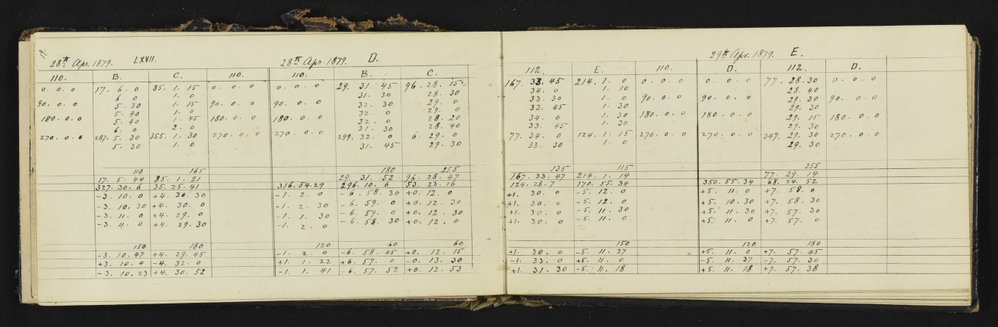 28th Apr. 1879. LXVII. 28th Apr. 1879. D.
110. B. C. 110. 110. B. C.
0. 0. 0 17. 6. 0 85. 1. 15 0. 0. 0 0. 0. 0 29. 31. 45 96. 28. 15
6. 0 1. 0 31. 30 28. 30
90. 0. 0 5. 30 1. 15 90. 0. 0 90. 0. 0 32. 30 29. 0
5. 40 1. 0 32. 0 29. 0
180. 0. 0 5. 40 1. 45 180. 0. 0 180. 0. 0 32. 0 28. 20
6. 0 2. 0 31. 30 28. 40
270. 0. 0 287. 5. 30 355. 1. 30 270. 0. 0 270. 0. 0 299. 32. 0 6. 29. 0
5. 30 1. 0 31. 45 29. 30
110 165 180 255
17. 5. 44 85. 1. 21 29. 31. 52 96. 28. 47
327. 30. 6 35. 25. 41 316. 54. 29 296. 10. 6 53. 23. 16
-3. 10. 0 +4. 30. 30 -1. 2. 0 -6. 58. 30 +0. 12. 0
-3. 10. 30 +4. 30. 0 -1. 2. 30 -6. 59. 0 +0. 12. 30
-3. 11. 0 +4. 29. 0 -1. 1. 30 -6. 59. 0 +0. 12. 30
-3. 11. 0 +4. 29. 30 -1. 2. 0 -6. 58. 30 +0. 12. 0
150 180 120 60 60
-3. 10. 47 +4. 29. 45 -1. 2. 0 -6. 58. 45 +0. 12. 15
+3. 10. 0 -4. 32. 0 +1. 1. 22 +6. 57. 0 -0. 13. 30
-3. 10. 23 +4. 30. 52 -1. 1. 41 -6. 57. 52 +0. 12. 53
29th Apr. 1879. E.
112. E. 110. D. 112. D.
167. 33. 45 214. 1. 0 0. 0. 0 0. 0. 0 77. 28. 30 0. 0. 0
34. 0 1. 10 28. 40
33. 30 1. 0 90. 0. 0 90. 0. 0 29. 30 90. 0. 0
33. 45 1. 30 29. 30
34. 0 1. 30 180. 0. 0 180. 0. 0 29. 15 180. 0. 0
33. 45 1. 30 29. 30
77. 34. 0 124. 1. 15 270. 0. 0 270. 0. 0 347. 29. 30 270. 0. 0
33. 30 1. 0 29. 30
135 115 355
167. 33. 47 214. 1. 14 77. 29. 14
124. 28. 7 170. 55. 34 350. 55. 34 68. 24. 52
+1. 30. 0 -5. 12. 0 +5. 11. 0 +7. 58. 0
+1. 30. 0 -5. 12. 0 +5. 10. 30 +7. 58. 0
+1. 30. 0 -5. 11. 30 +5. 11. 30 +7. 57. 30
+1. 30. 0 -5. 11. 0 +5. 11. 0 +7. 57. 0
150 120 180
+1. 30. 0 -5. 11. 37 +5. 11. 0 +7. 57. 45
-1. 33. 0 +5. 11. 0 -5. 11. 37 -7. 57. 30
+1. 31. 30 -5. 11. 18 +5. 11. 18 +7. 57. 38